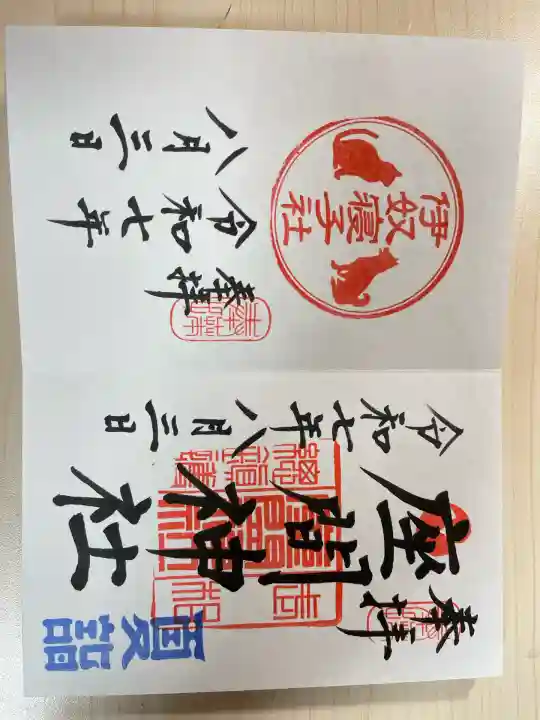 奉拝
座間神社
令和七年八月三日
夏詣
伊奴寝子社
奉拝
令和七年
八月三日